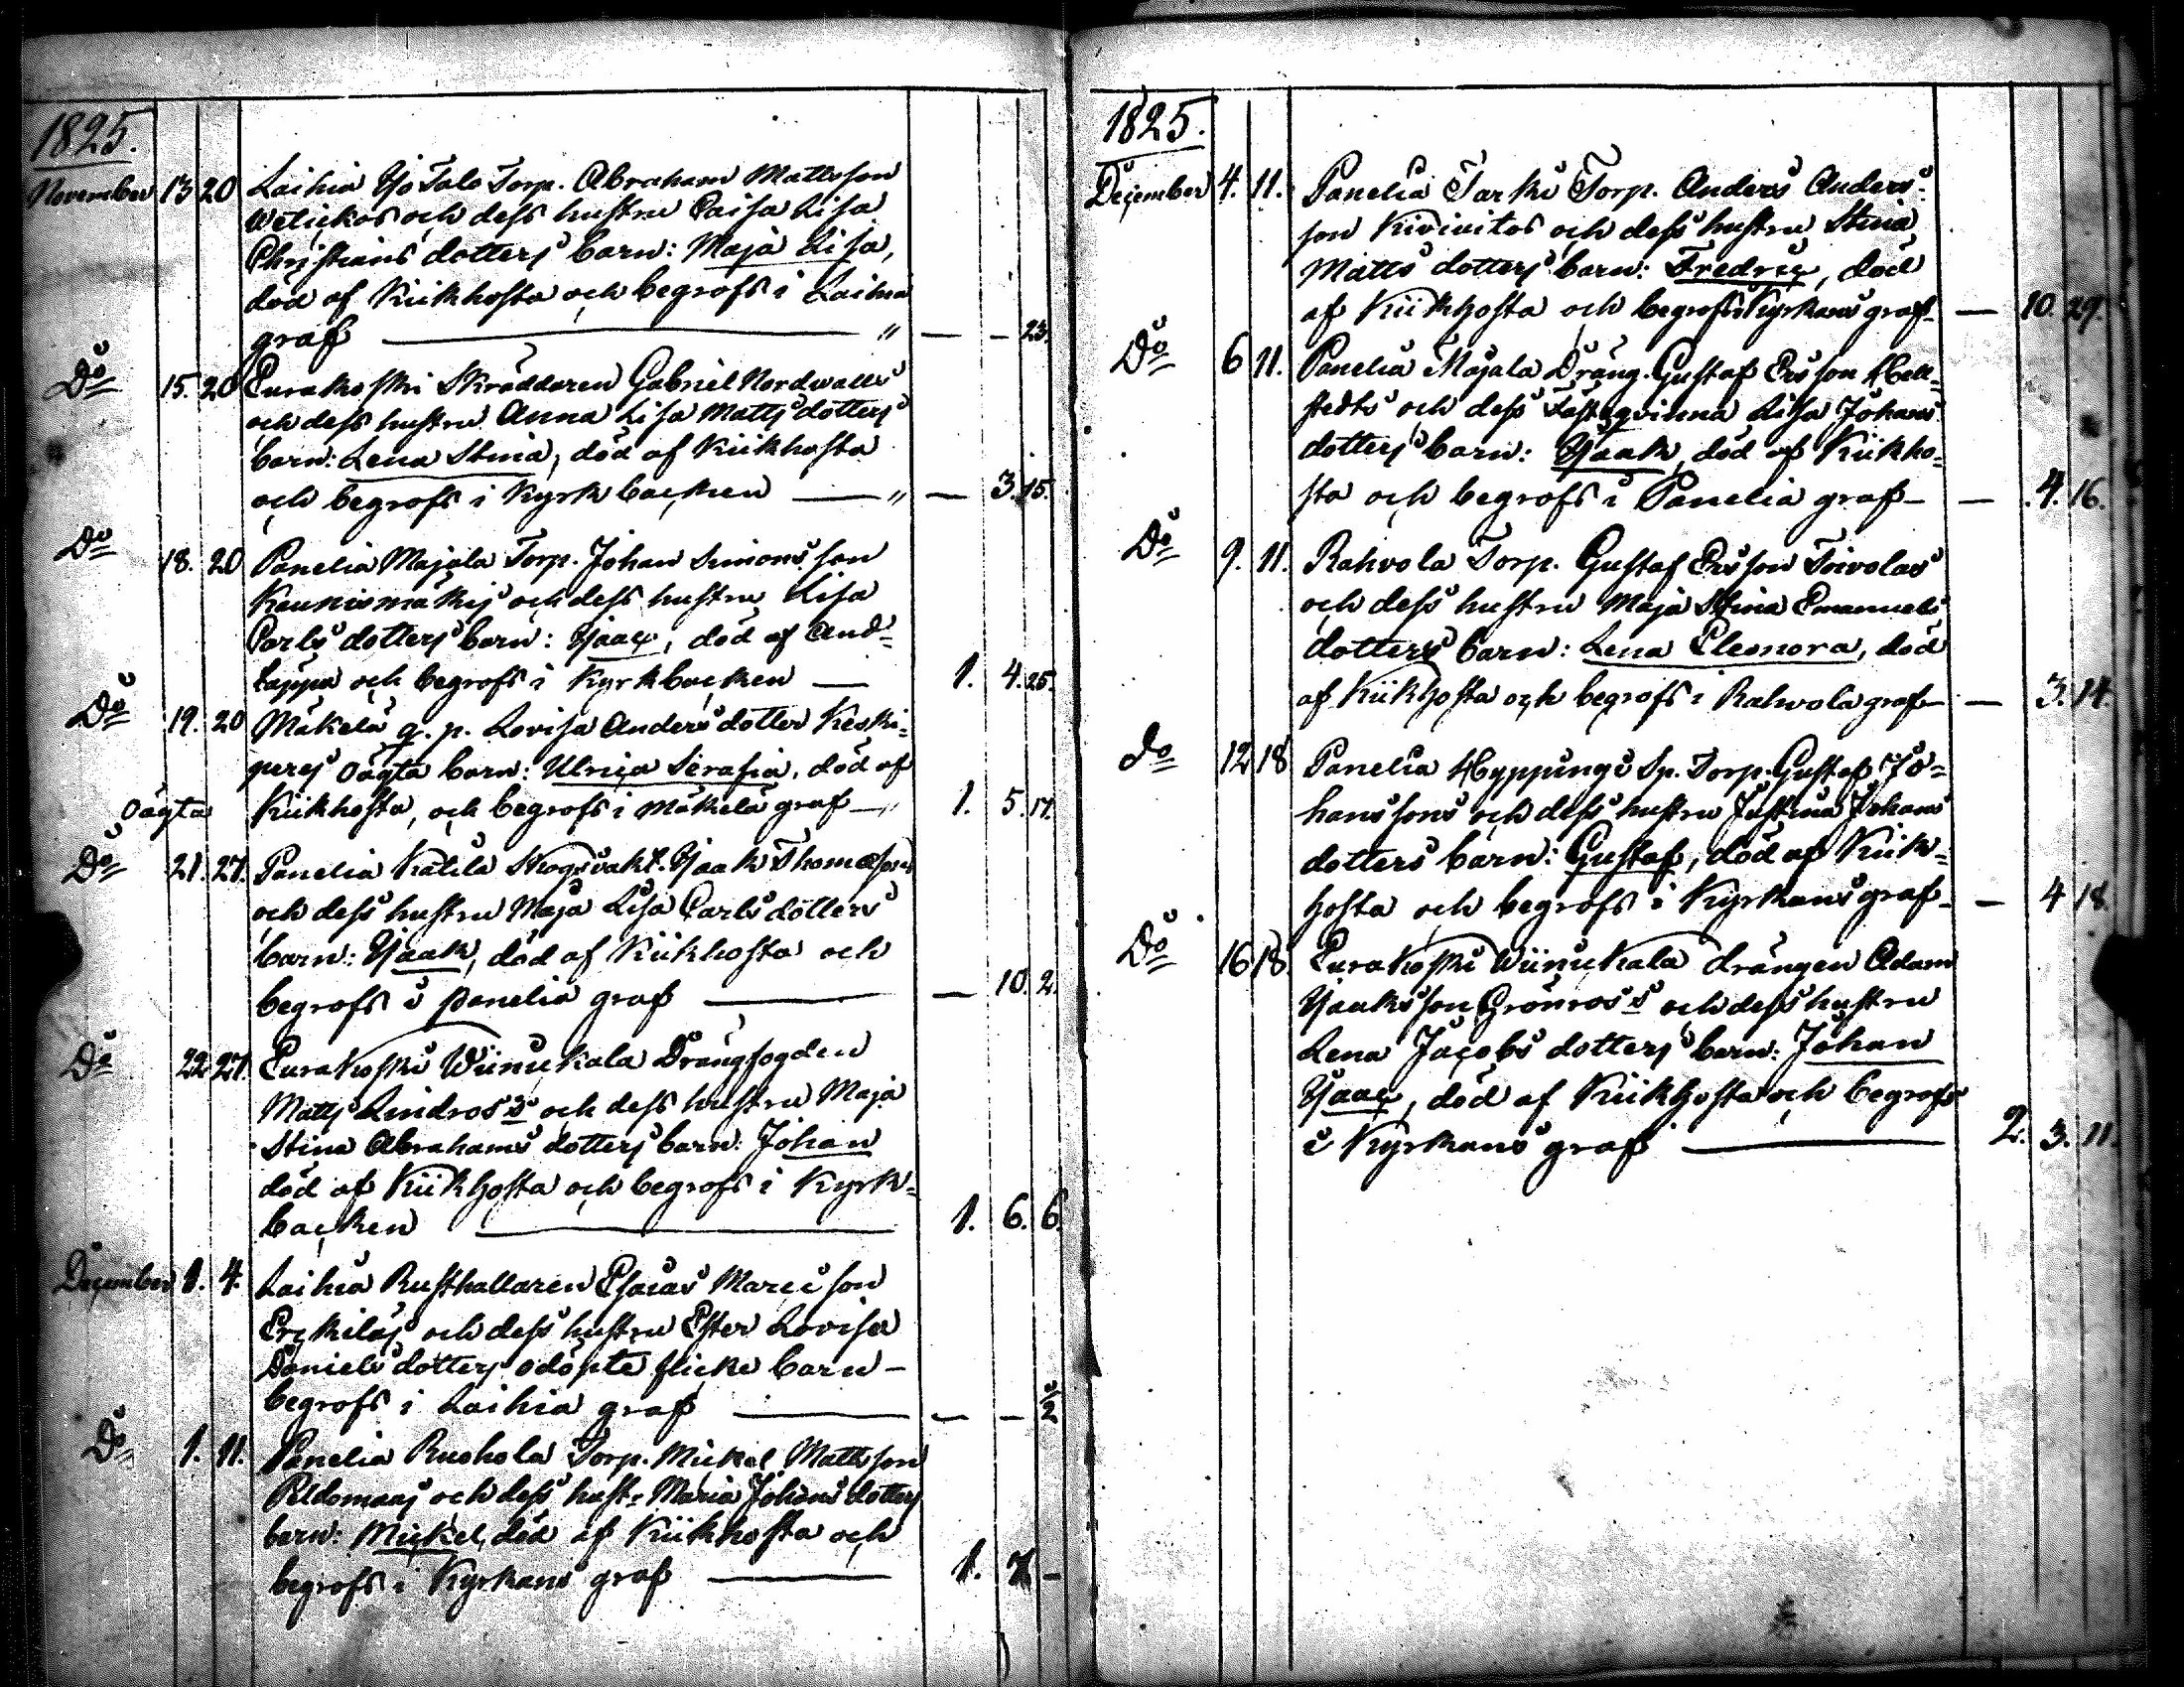 1825.
November 13 20 Laihia Yso Talo Torp. Abraham Mattsson
och dess hustru Caisa Lisa
Christians dotters barn: Maja Lisa,
död af Kikhosta och begrofs i Laihia
graf — " — — 23.
Do 15. 20 Eurakoski Skräddaren Gabriel Nordwalls
och dess hustru Anna Lisa Matts dotters
barn: Lena Stina, död af Kiikhosta
och begrofs i Kyrkbacken — " — 3. 15.
Do 18. 20 Panelia Majala Torp. Johan Simonsson
Kaunismäkis och dess hustru Lisa
Carls dotters barn: Isaac, död af And-
täppa och begrofs i Kyrkbacken — 1. 4. 25.
Do 19. 20 Mäkelä q. p. Lovisa Anders dotter Keski-
perej oägta barn: Ulrica Serafia, död af
oägta Kiikhosta, och begrofs i Mäkelä graf — " 1. 5. 17.
Do 21. 27. Panelia Katila Skogsvakt. Isaak Thomasson
och dess hustru Maja Lisa Carls dotters
barn: Isaak, död af Kiikhosta och
begrofs i Panelia graf — — 10. 2.
Do 22 27. Eurakoski Wiinickala Drängfogden
Matts Lindros's och dess hustru Maja
Stina Abrahams dotters barn: Johan
död af Kiikhosta och begrofs i Kyrk-
backen — 1. 6. 6.
December 1. 4. Laihia Rusthallaren Esaias Marcisson
Erckiläs och dess hustru Ester Lovisa
Daniels dotters odöpte flicke barn —
begrofs i Laihia graf — — — 2
Do 1. 11. Panelia Ruohola Torp. Mickel Mattsson
Peldomaas och dess hust: Maria Johans dotters
barn: Mickel, död af Kiikhosta och
begrofs i Kyrkans graf — 1. 7 —
1825.
December 4. 11. Panelia Tarki Torp. Anders Anders-
son Kivinitos och dess hustru Stina
Matts dotters barn: Fredric, död
af Kiikhosta och begrofs i Kyrkans graf — — 10. 29.
Do 6 11. Panelia Majala Dräng. Gustaf Ersson Hell-
stedts och dess Fästeqvinna Lisa Johans
dotters barn: Isaak, död af Kiikho-
sta och begrofs i Panelia graf — — 4. 16.
Do 9. 11. Rahvola Torp. Gustaf Ersson Toivolas
och dess hustru Maja Stina Emanuels
dotters barn: Lena Eleonora, död
af Kiikhosta och begrofs i Rahvola graf — — 3. 14.
do 12 18 Panelia Hyppingi Sp. Torp. Gustaf Jo-
hanssons och dess hustru Justina Johans
dotters barn: Gustaf, död af Kiik-
hosta och begrofs i Kyrkans graf — — 4 18.
Do 16 18. Eurakoski Wiinickala drängen Adam
Isaksson Grönros's och dess hustru
Lena Jacobs dotters barn: Johan
Isaac, död af Kiikhosta och begrofs
i Kyrkans graf — 2. 3. 11.